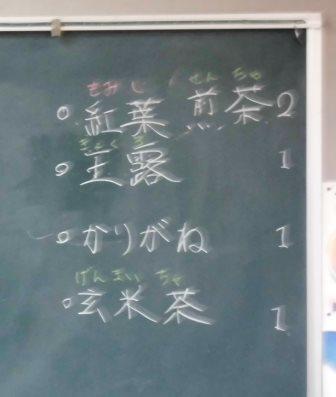 もみじ せん ちゃ
○紅葉 煎茶 2
ぎょくろ
○玉露 1
○かりがね 1
げん まい ちゃ
○玄米茶 1